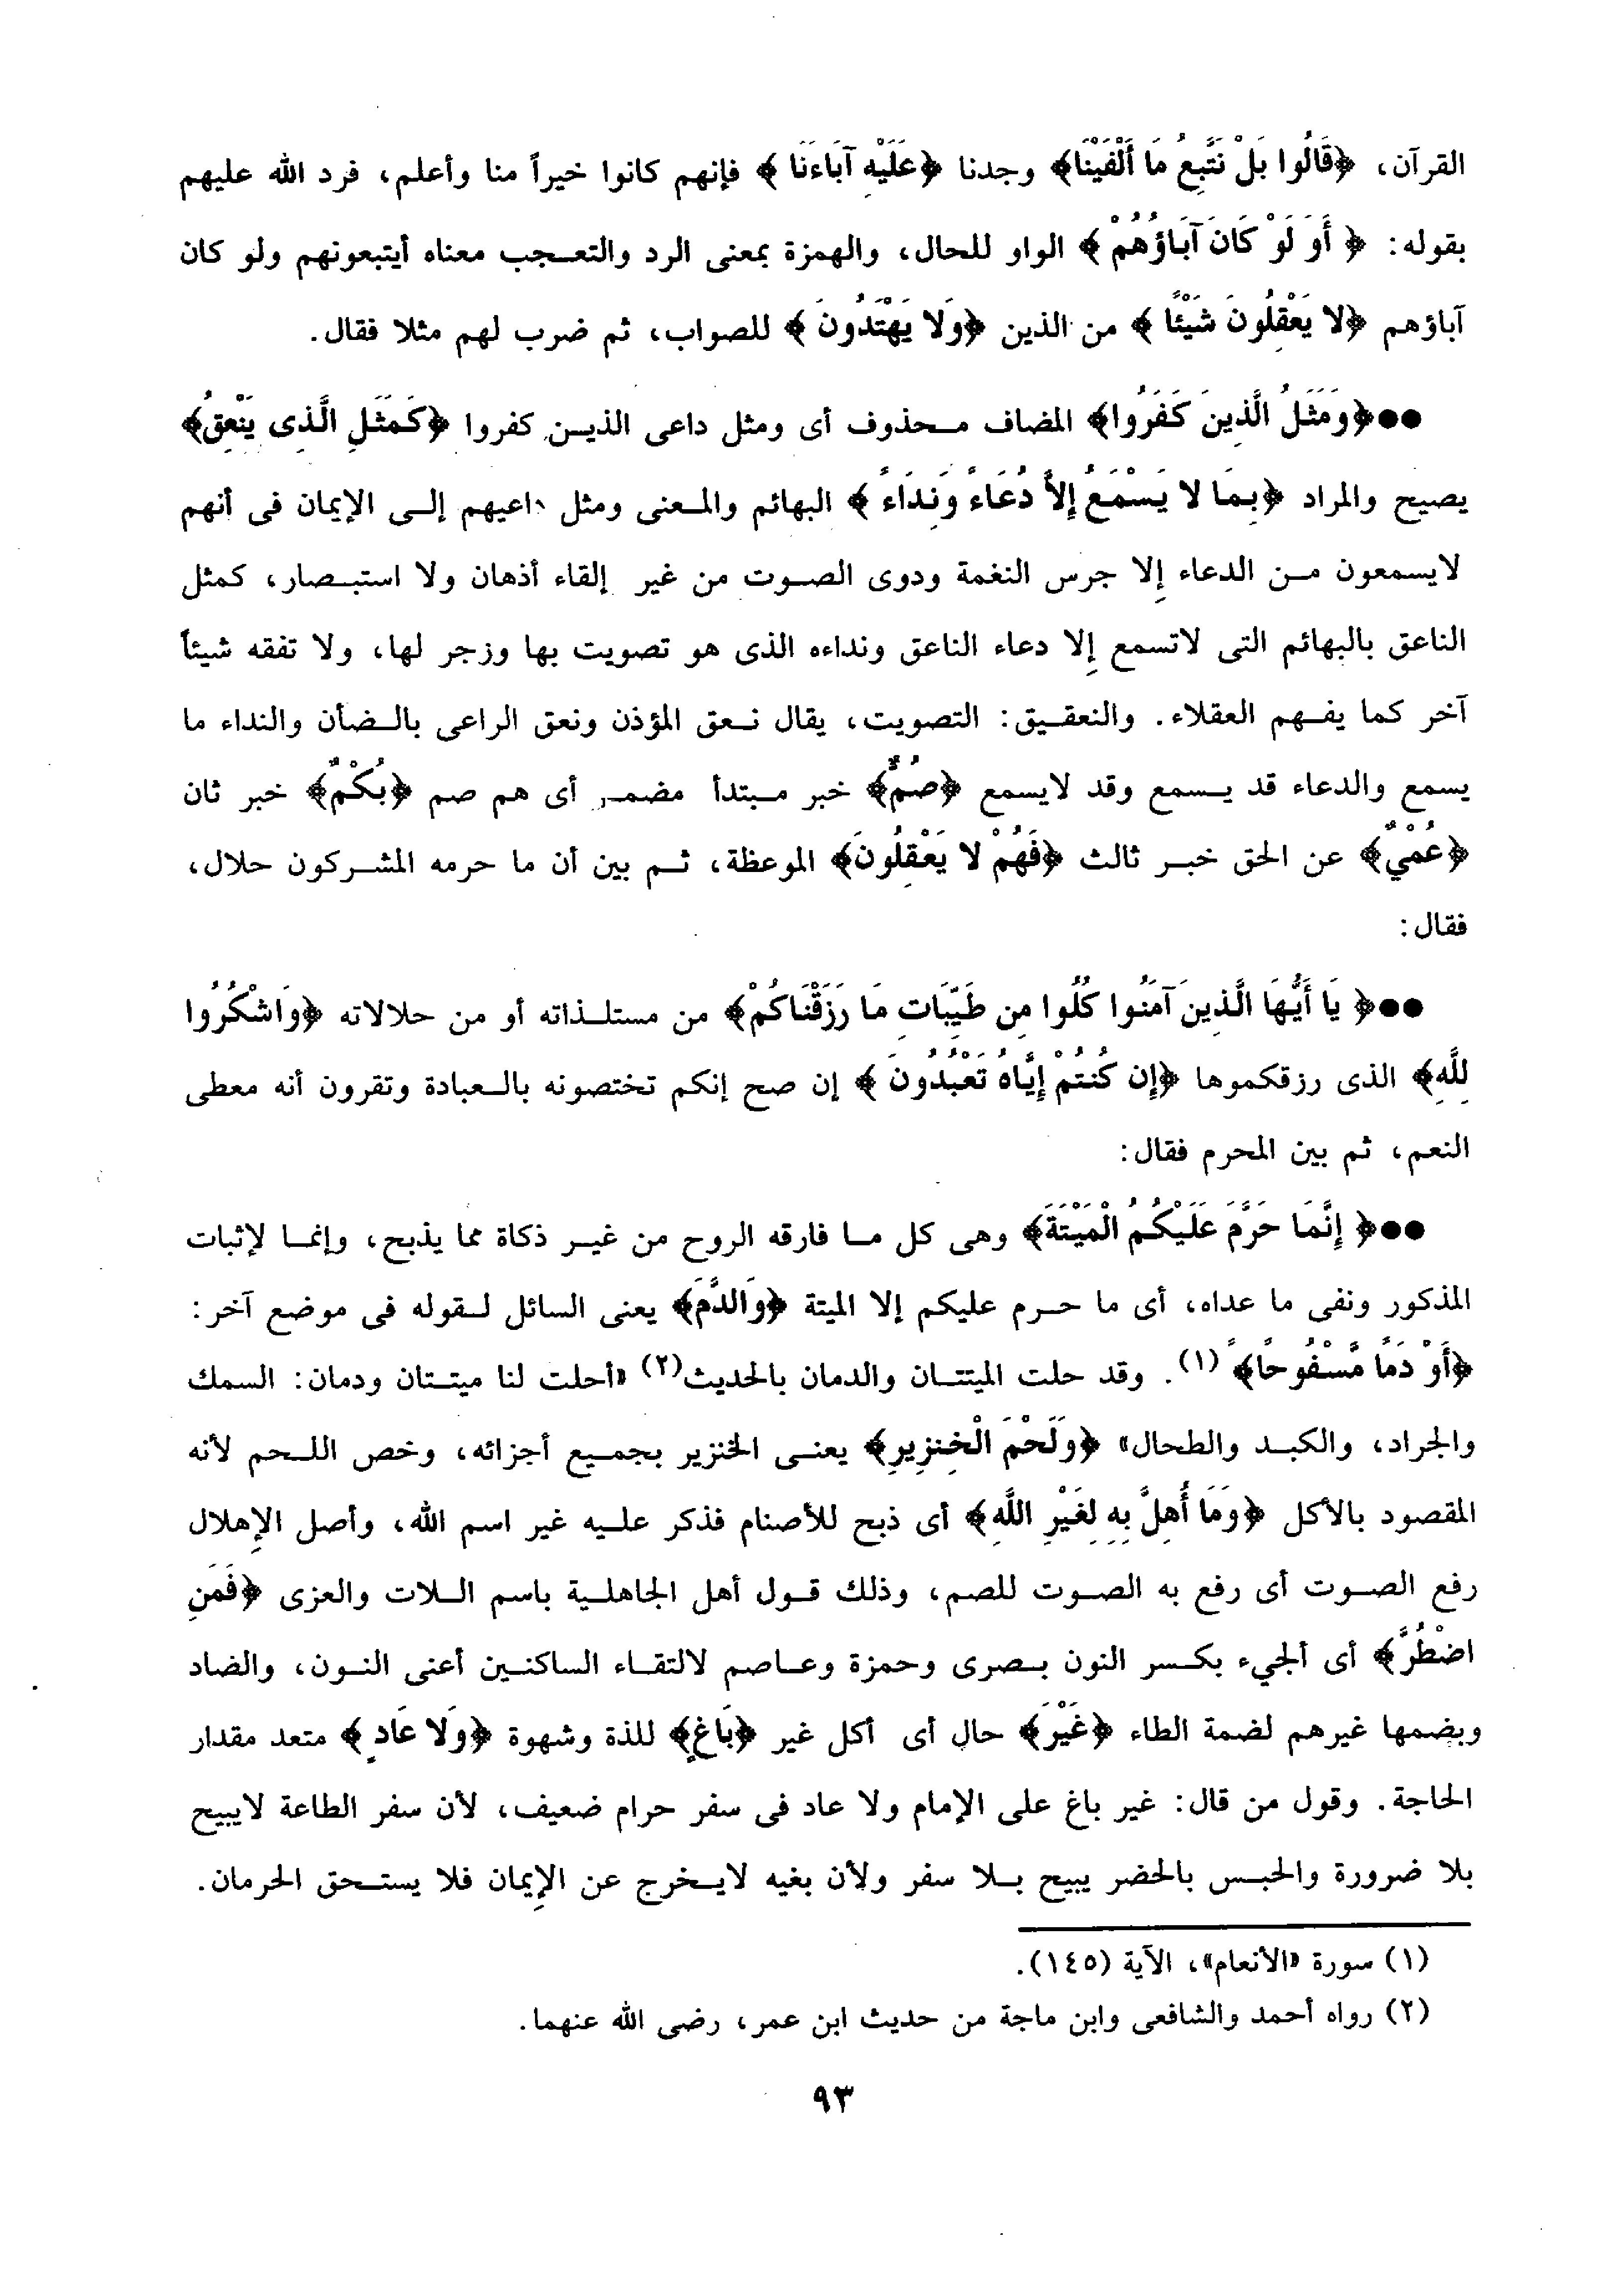 القرآن، ﴿قَالُوا بَلْ نَتَّبِعُ مَا أَلْفَيْنَا﴾ وجدنا ﴿عَلَيْهِ آبَاءَنَا ﴾ فإنهم كانوا خيراً منا وأعلم، فرد الله عليهم
بقوله: ﴿ أَوَ لَوْ كَانَ آبَاؤُهُمْ ﴾ الواو للحال، والهمزة بمعنى الرد والتعجب معناه أيتبعونهم ولو كان
آباؤهم ﴿لا يَعْقِلُونَ شَيْئًا ﴾ من الذين ﴿وَلا يَهْتَدُونَ ﴾ للصواب، ثم ضرب لهم مثلا فقال.
●●﴿وَمَثَلُ الَّذِينَ كَفَرُوا﴾ المضاف محذوف أى ومثل داعى الذين كفروا ﴿كَمَثَلِ الَّذِى يَنْعِقُ﴾
يصيح والمراد ﴿بِمَا لا يَسْمَعُ إِلاَّ دُعَاءً وَنِدَاءً ﴾ البهائم والمعنى ومثل داعيهم إلى الإيمان فى أنهم
لايسمعون من الدعاء إلا جرس النغمة ودوى الصوت من غير إلقاء أذهان ولا استبصار، كمثل
الناعق بالبهائم التى لاتسمع إلا دعاء الناعق ونداءه الذى هو تصويت بها وزجر لها، ولا تفقه شيئاً
آخر كما يفهم العقلاء. والنعقيق: التصويت، يقال نعق المؤذن ونعق الراعى بالضأن والنداء ما
يسمع والدعاء قد يسمع وقد لايسمع ﴿صُمٌّ﴾ خبر مبتدأ مضمر أى هم صم ﴿بُكْمٌ﴾ خبر ثان
﴿عُمْيٌ﴾ عن الحق خبر ثالث ﴿فَهُمْ لا يَعْقِلُونَ﴾ الموعظة، ثم بين أن ما حرمه المشركون حلال،
فقال:
●●﴿ يَا أَيُّهَا الَّذِينَ آمَنُوا كُلُوا مِن طَيِّبَاتِ مَا رَزَقْنَاكُمْ﴾ من مستلذاته أو من حلالاته ﴿وَاشْكُرُوا
لِلَّهِ﴾ الذى رزقكموها ﴿إِن كُنتُمْ إِيَّاهُ تَعْبُدُونَ ﴾ إن صح إنكم تختصونه بالعبادة وتقرون أنه معطى
النعم، ثم بين المحرم فقال:
●●﴿ إِنَّمَا حَرَّمَ عَلَيْكُمُ الْمَيْتَةَ﴾ وهى كل ما فارقه الروح من غير ذكاة مما يذبح، وإنما لإثبات
المذكور ونفى ما عداه، أى ما حرم عليكم إلا الميتة ﴿وَالدَّمَ﴾ يعنى السائل لقوله فى موضع آخر:
﴿أَوْ دَمًا مَّسْفُوحًا﴾ (١). وقد حلت الميتتان والدمان بالحديث(٢) «أحلت لنا ميتتان ودمان: السمك
والجراد، والكبد والطحال» ﴿وَلَحْمَ الْخِنزِيرِ﴾ يعنى الخنزير بجميع أجزائه، وخص اللحم لأنه
المقصود بالأكل ﴿وَمَا أُهِلَّ بِهِ لِغَيْرِ اللَّهِ﴾ أى ذبح للأصنام فذكر عليه غير اسم الله، وأصل الإهلال
رفع الصوت أى رفع به الصوت للصم، وذلك قول أهل الجاهلية باسم اللات والعزى ﴿فَمَنِ
اضْطُرَّ﴾ أى ألجيء بكسر النون بصرى وحمزة وعاصم لالتقاء الساكنين أعنى النون، والضاد
وبضمها غيرهم لضمة الطاء ﴿غَيْرَ﴾ حال أى أكل غير ﴿بَاغٍ﴾ للذة وشهوة ﴿وَلا عَادٍ ﴾ متعد مقدار
الحاجة. وقول من قال: غير باغ على الإمام ولا عاد فى سفر حرام ضعيف، لأن سفر الطاعة لايبيح
بلا ضرورة والحبس بالحضر يبيح بلا سفر ولأن بغيه لايخرج عن الإيمان فلا يستحق الحرمان.
(١) سورة «الأنعام»، الآية (١٤٥).
(٢) رواه أحمد والشافعى وابن ماجة من حديث ابن عمر، رضى الله عنهما.
٩٣